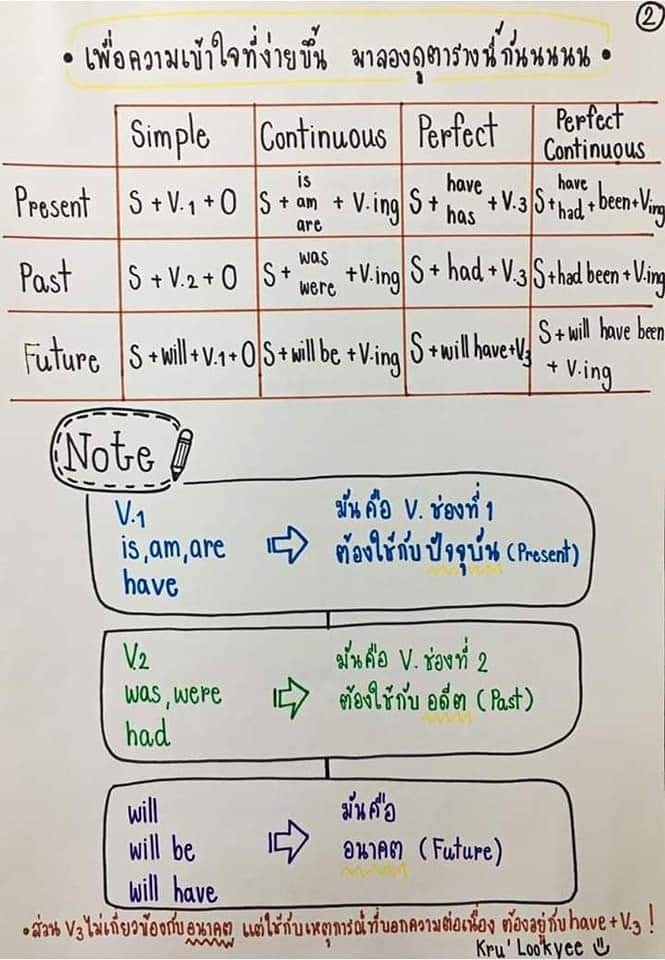 2
• เพื่อความเข้าใจที่ง่ายขึ้น มาลองดูตารางนี้กันนนนน •
Simple Continuous Perfect Perfect Continuous
Present S + V.1 + O S + is am are + V.ing S + have has + V.3 S + have had + been + Ving
Past S + V.2 + O S + was were + V.ing S + had + V.3 S + had been + V.ing
Future S + will + V.1 + O S + will be + V.ing S + will have + V3 S + will have been + V.ing
Note
V.1
is, am, are
have
มันคือ V. ช่องที่ 1
ต้องใช้กับ ปัจจุบัน (Present)
V2
was, were
had
มันคือ V. ช่องที่ 2
ต้องใช้กับ อดีต (Past)
will
will be
will have
มันคือ
อนาคต (Future)
• ส่วน V3 ไม่เกี่ยวข้องกับอนาคต แต่ใช้กับเหตุการณ์ที่บอกความต่อเนื่อง ต้องอยู่กับ have + V3 !
Kru' Lookyee